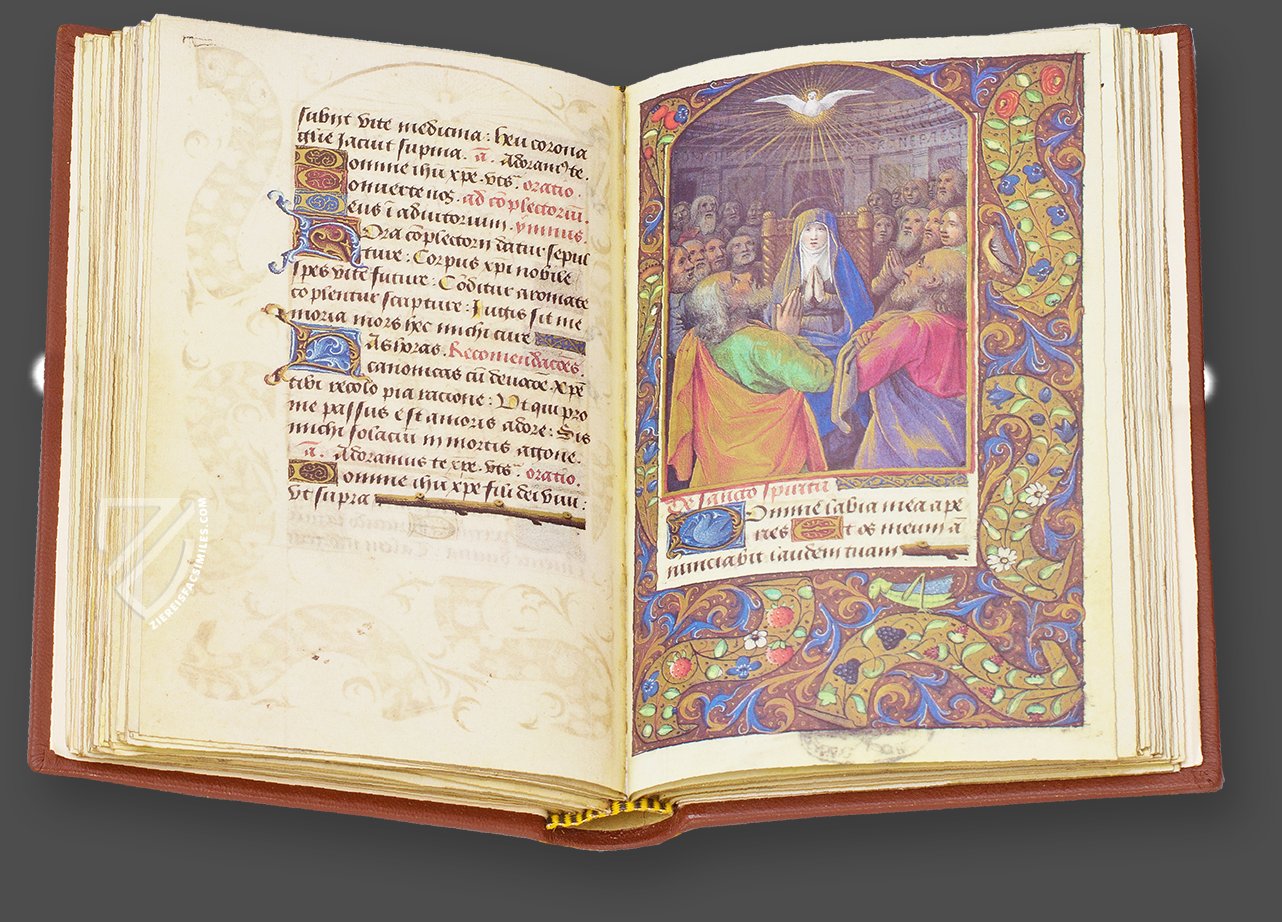 sabnt vite medicina: heu corona
que Jacuit supina. a. Adoram⁹ te.
omine ihu xpe. vts. oratio.
onuerte nos. ad cōplectoriū.
eus ī adiutorium. ymnus.
Ora cōplectorii datur sepul
ture. Corpus xpi nobile
spes vite future. Cōditur aromate
cōplentur scripture: Jugis sit me
moria mors hec michi cure
As horas. Recomendacōes.
canonicas cū deuoce xpē
tibi recolo pia racione: Vt qui pro
me passus est amoris adore: Sis
michi solaciū in mortis agone.
a. Adoramus te xpe. vts. oratio.
omine ihu xpe fili dei viui:
vt supra
De sancto spiritu
Omine labia mea ape
ries Et os meum ā
nunciabit laudem tuam
ZIEREISFACSIMILES.COM